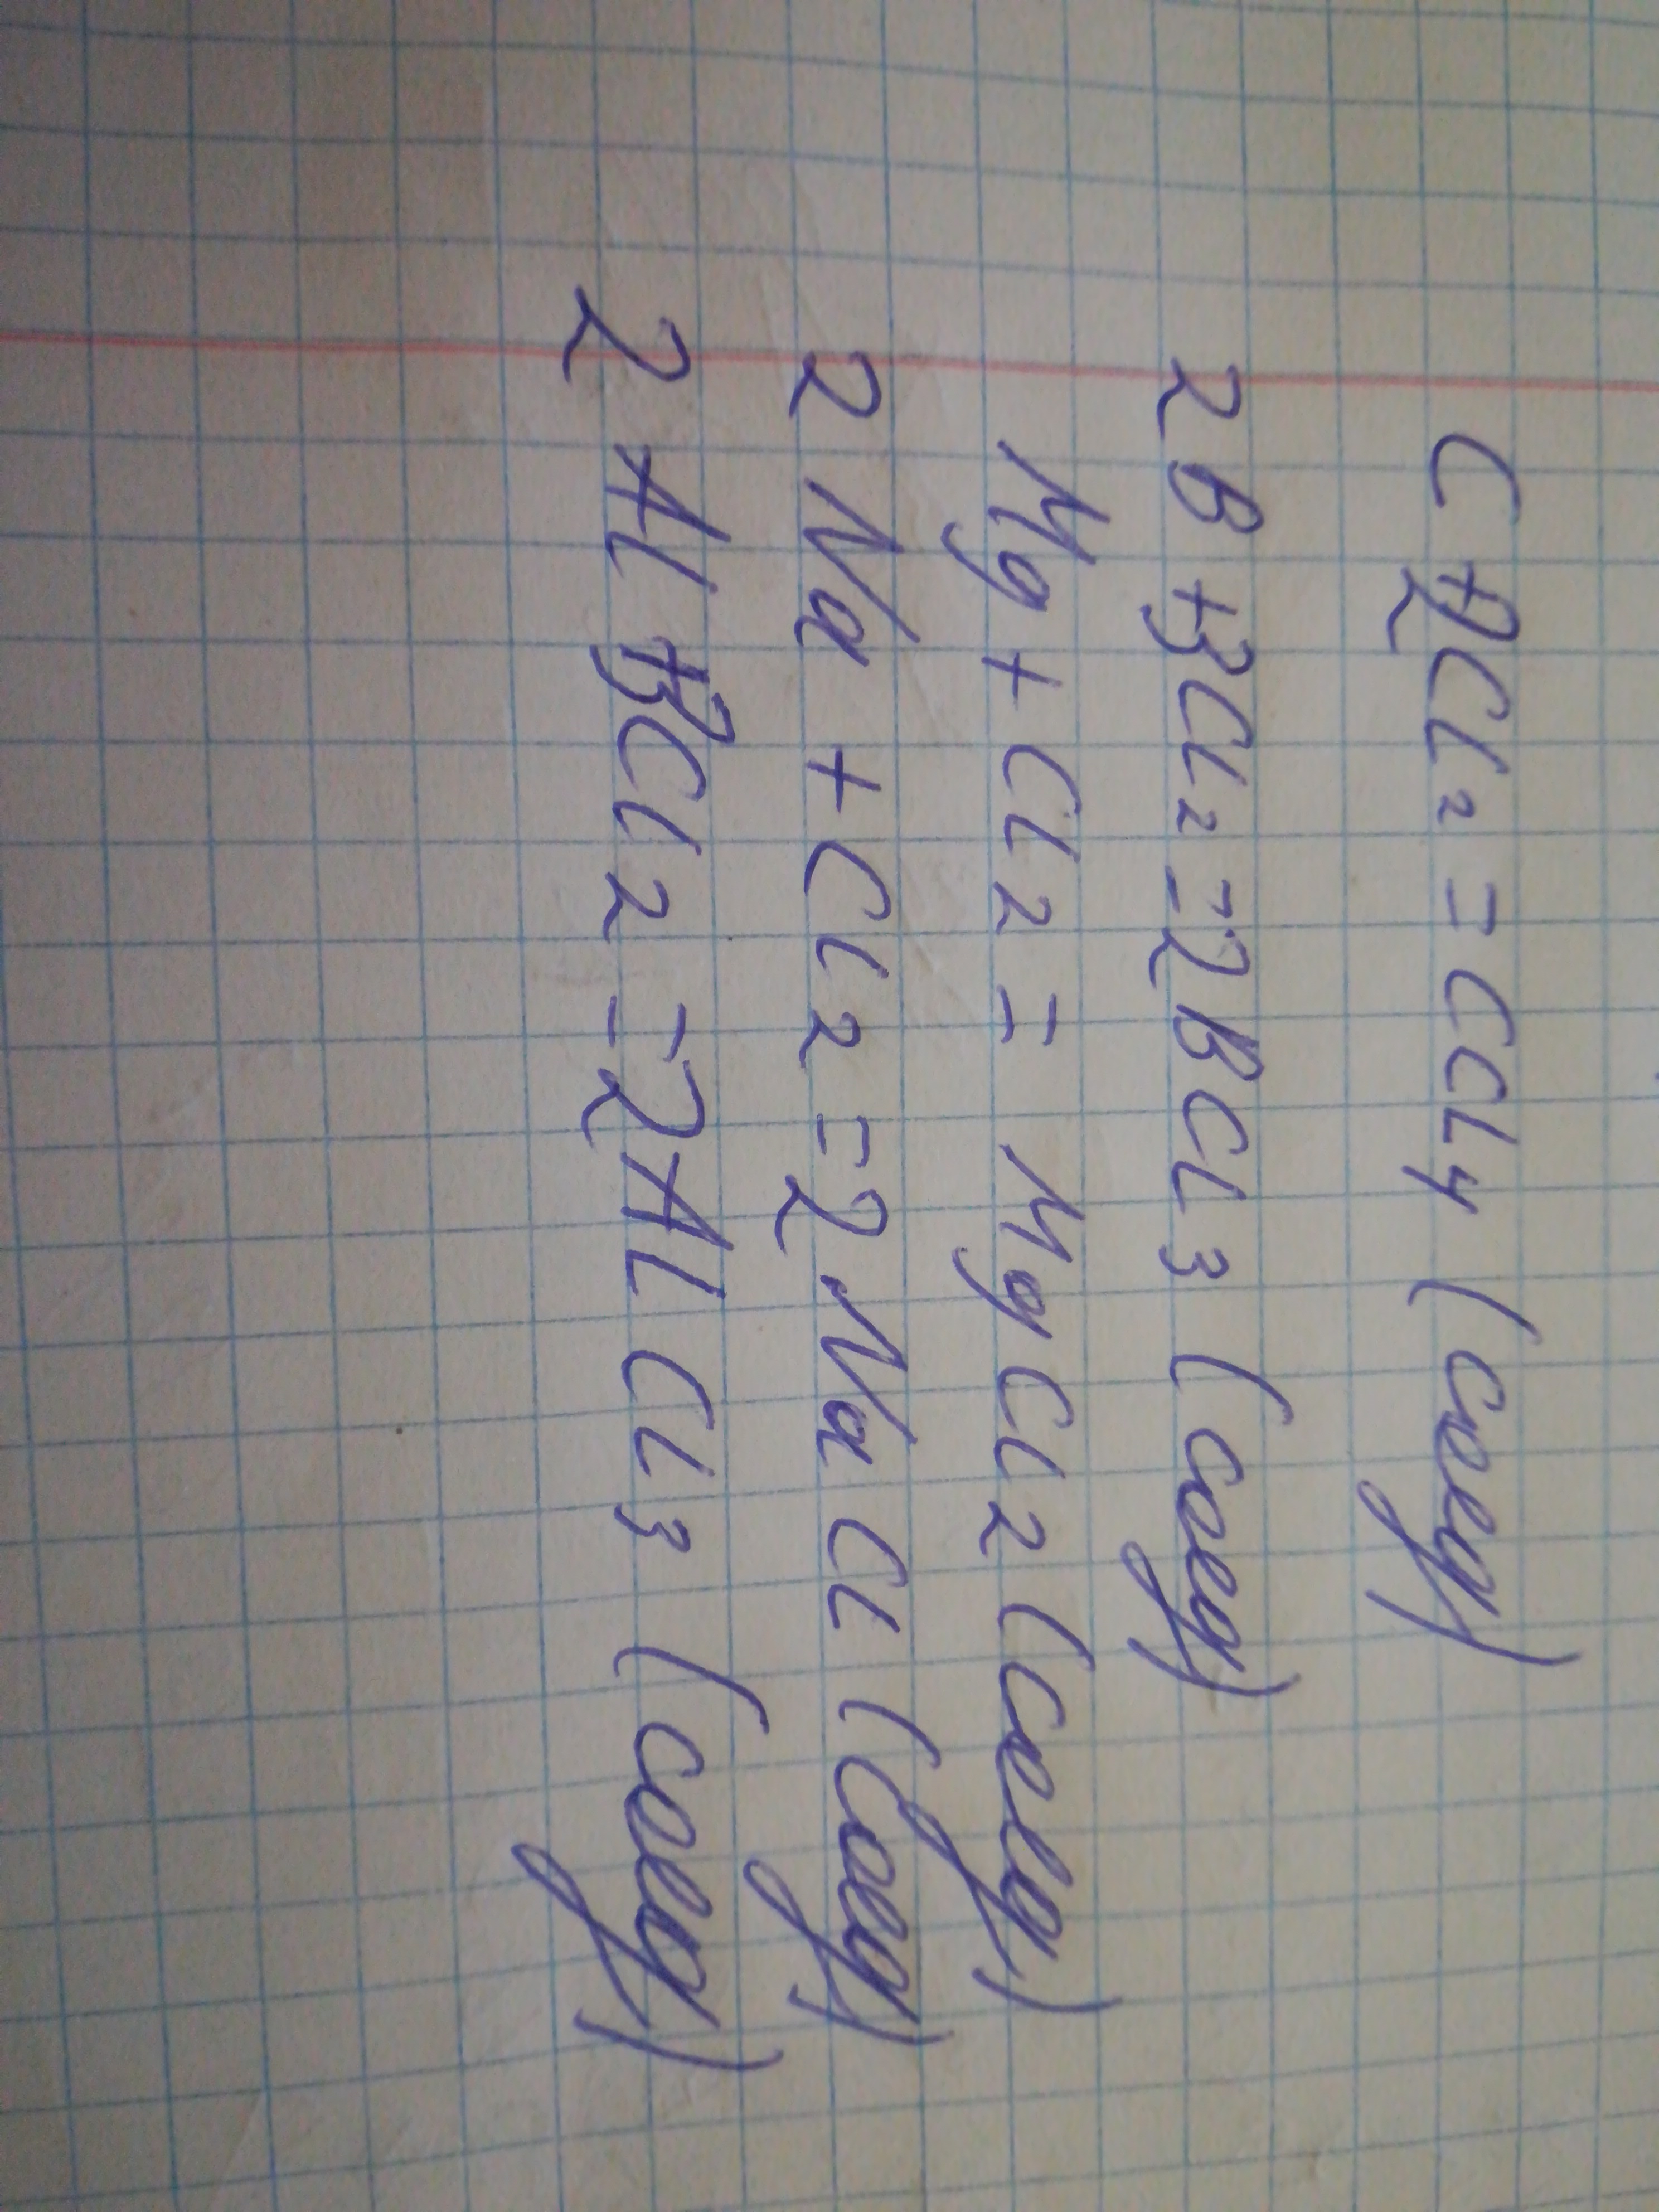 C + 2Cl2 = CCl4 (соед)
2B + 3Cl2 = 2BCl3 (соед)
Mg + Cl2 = MgCl2 (соед)
2Na + Cl2 = 2NaCl (соед)
2Al + 3Cl2 = 2AlCl3 (соед)